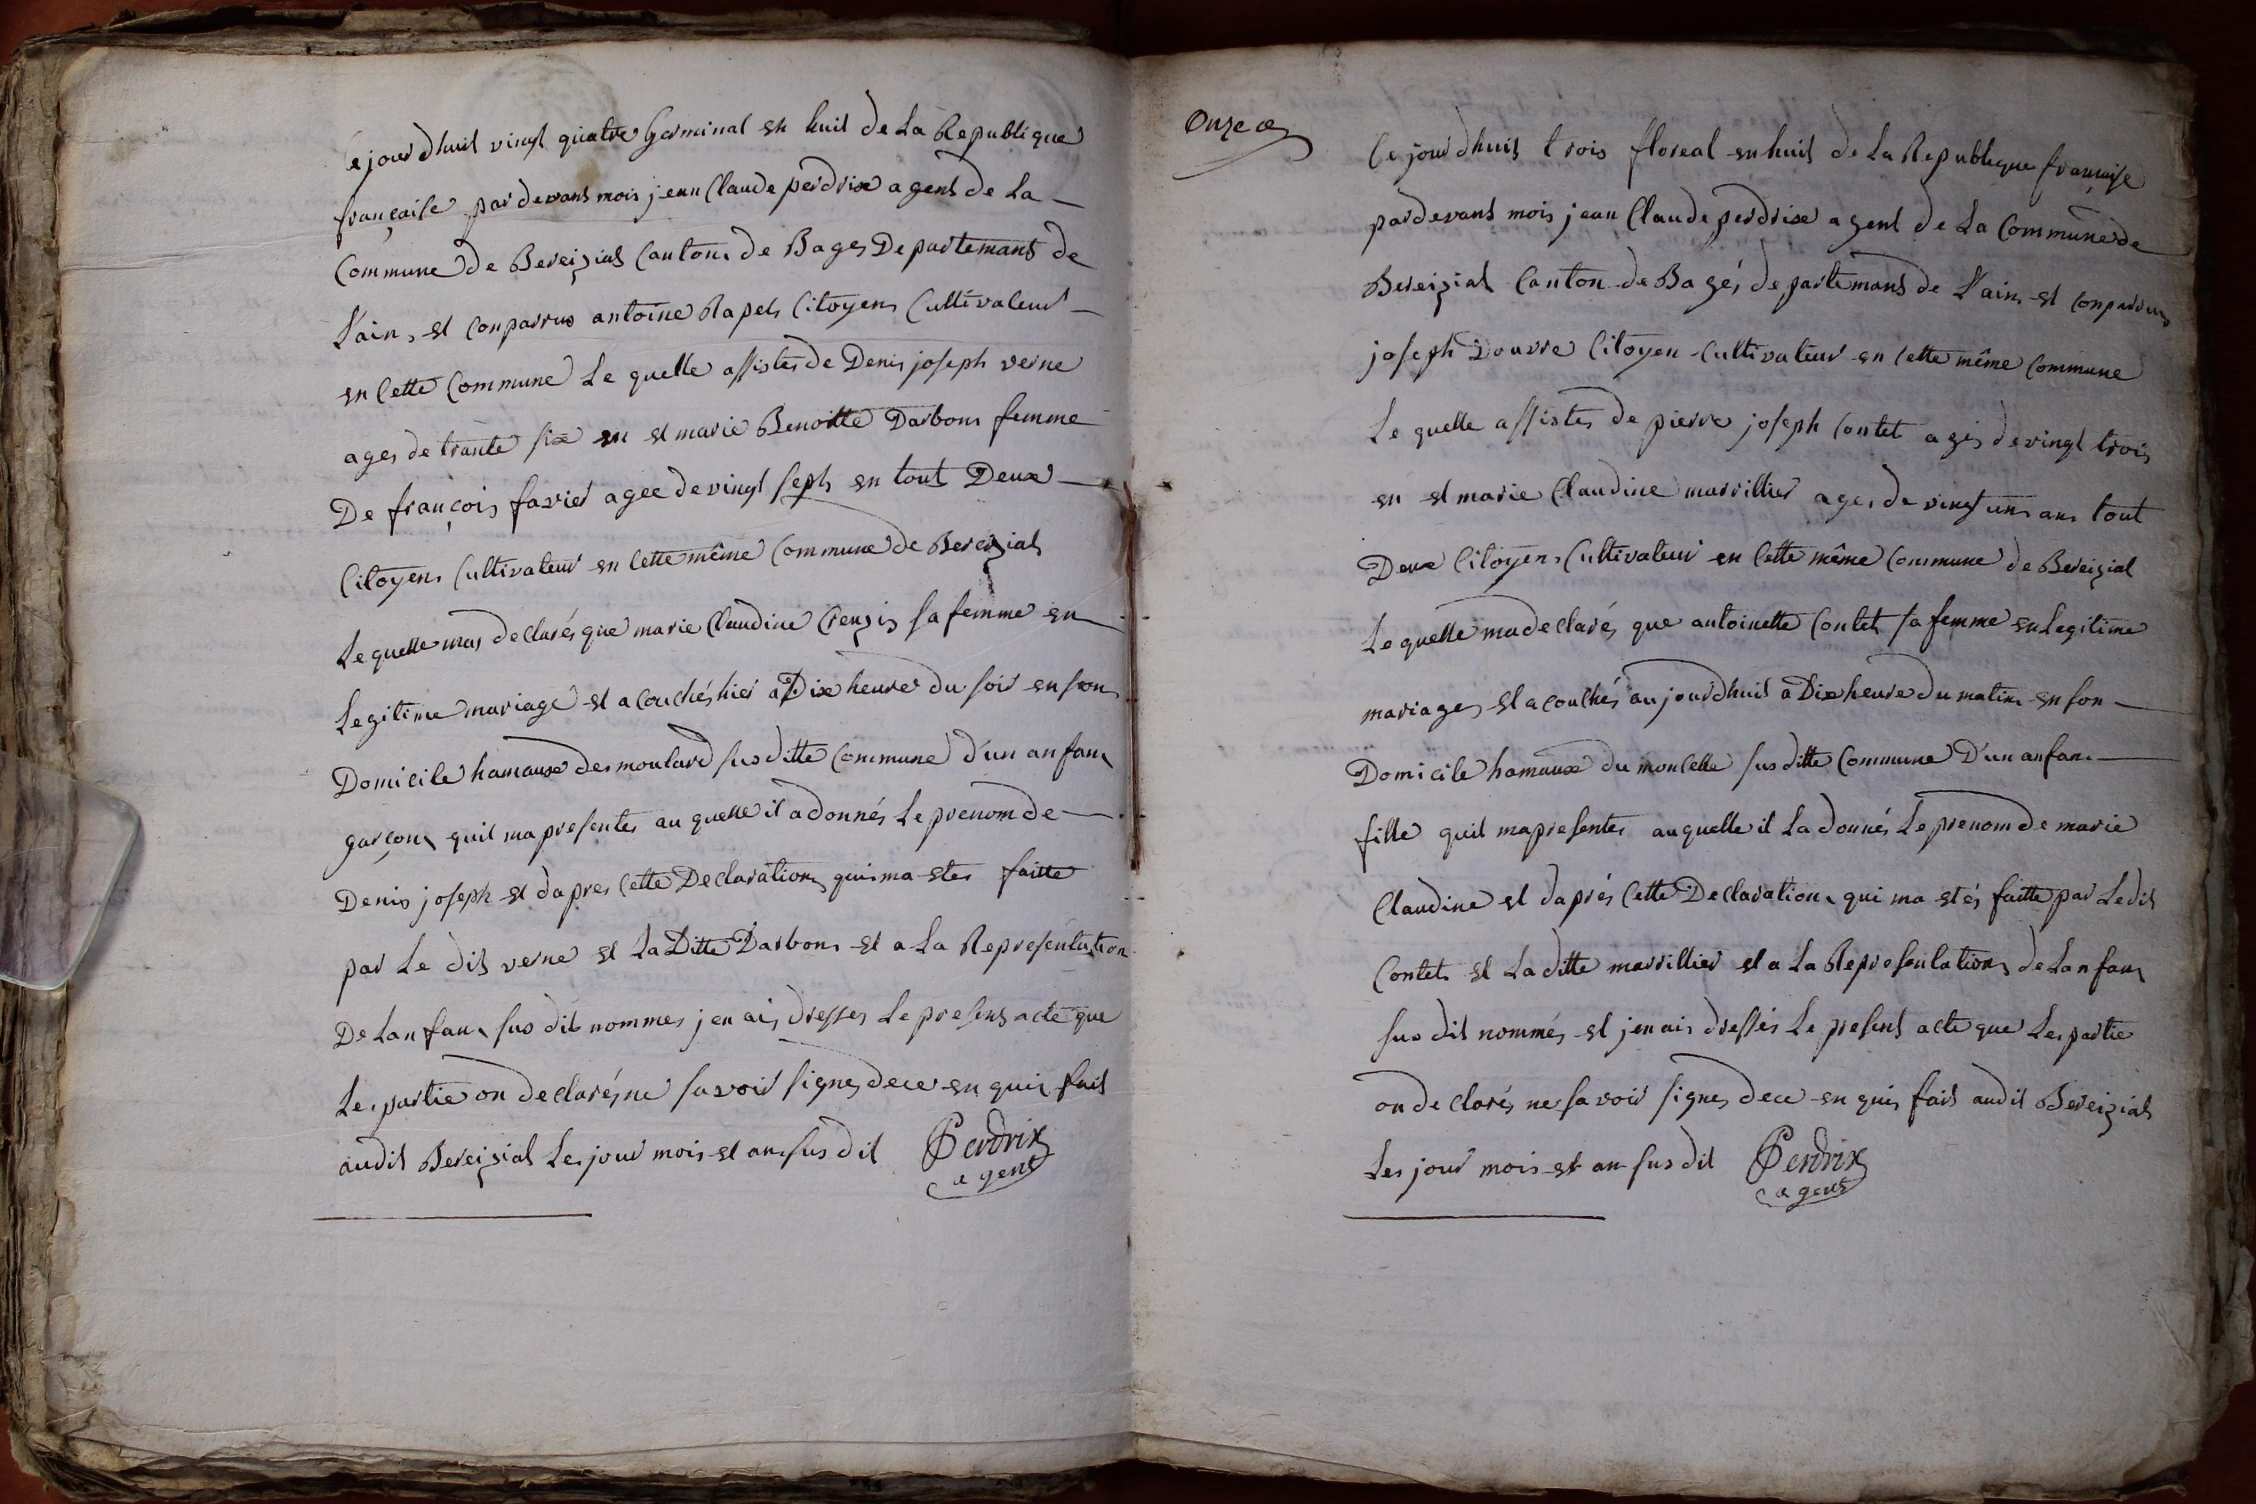 Ce jourdhuit vingt quatre Germinal en huit de La Republique
française par devant mois jean Claude perdrix agent de La
Commune de Bereiziat Canton de Bages Departemant de
L'ain, et conparrus antoine Rapet Citoyen Cultivateur
en Cette Commune Le quelle assistes de Denis joseph verne
ages de trante six en et marie Benoitte Darbon femme
De françois favier agee de vingt sept en tout Deux
Citoyens Cultivateur en Cette même Commune de Bereiziat
Le quelle mas declarés que marie Claudine Creuzis sa femme en
Legitime mariage et acouchés hier a Dix heure du soir en son
Domicile hamaux des moulard sus ditte Commune d'un anfan
garçon quil ma presentes au quelle il a donnés Le prenom de
Denis joseph et dapres Cette Declaration qui ma etes faitte
par Le dit verne et La Ditte Darbon et a La Representation
De Lanfan sus dit nommes jen ais dresses Le present acte que
Les partie on declarés ne savoir signes dece enquis fait
audit Bereiziat Les jour mois et an sus dit Perdrix
agent
Onze
Ce jourdhuit trois floreal en huit de La Republique française
pardevant mois jean Claude perdrix agent de La Commune de
Bereiziat Canton de Bagés departemant de L'ain et conparrus
joseph Douvre Citoyen Cultivateur en Cette même Commune
Le quelle assistes de pierre joseph Contet agés de vingt trois
en et marie Claudine marvillier ages de vingt un an tout
Deux Citoyens Cultivateur en Cette même Commune de Bereiziat
Le quelle ma declarés que antoinette Contet sa femme en Legitime
mariages et acouchés aujourdhuit a Dix heure du matin en son
Domicile hamaux du moncelle sus ditte Commune D'un anfan
fille quil ma presentes au quelle il La donnés Le prenom de marie
Claudine et daprés Cette Declaration qui ma etés faitte par Ledit
Contet et La ditte marvillier et a La Representation de Lanfan
sus dit nommés et jen ais dressés Le present acte que Les partie
on declarés ne savoir signes dece enquis fait audit Bereiziat
Les jour mois et an sus dit Perdrix
agent